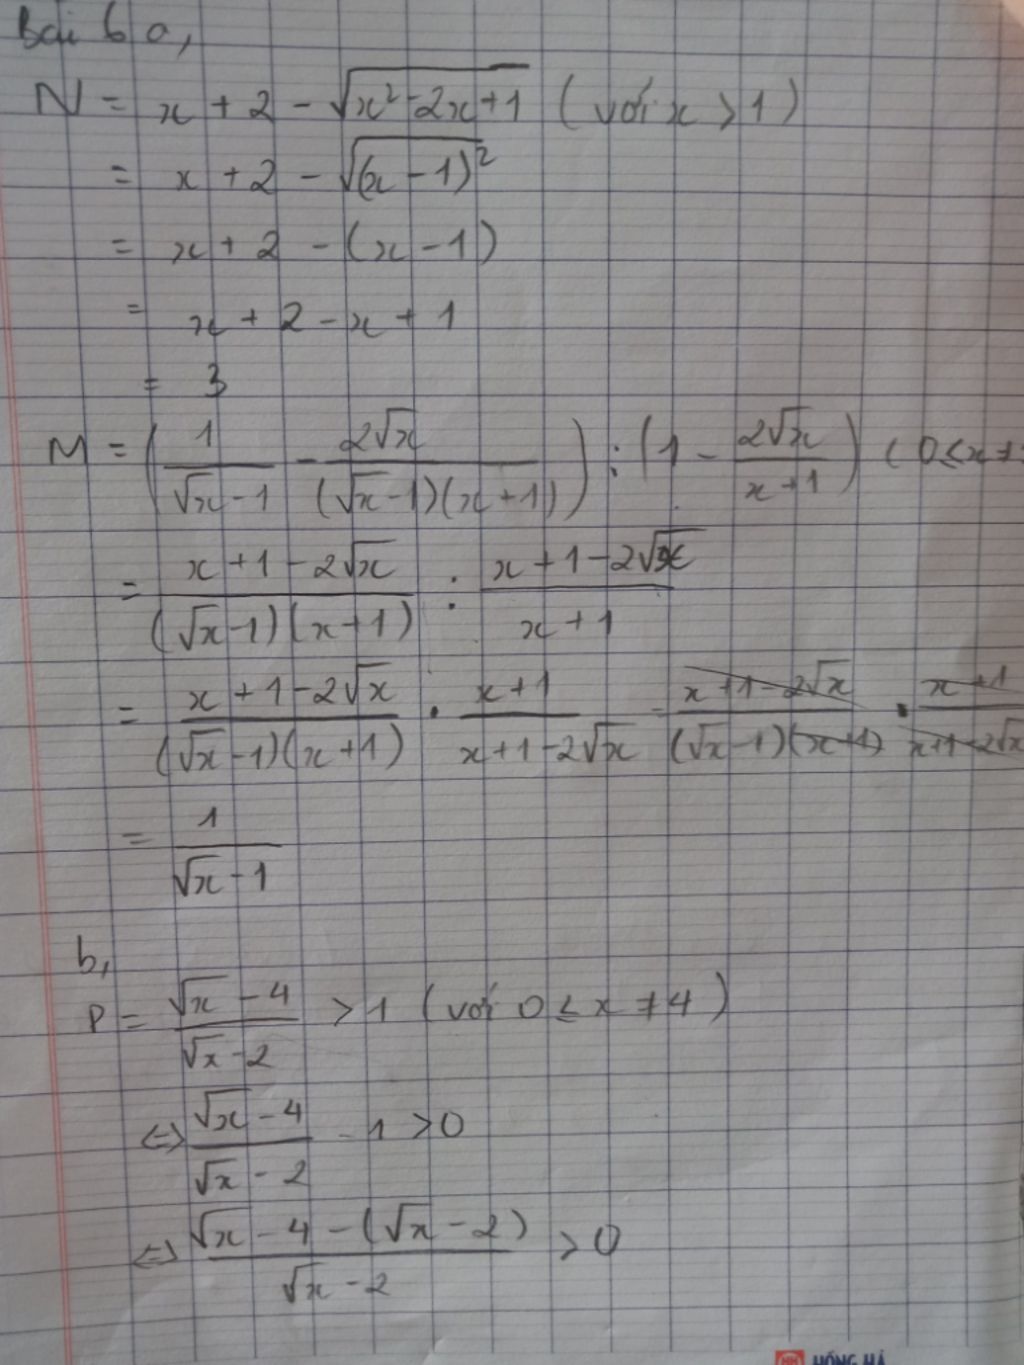 Bài 6 a,
N = x + 2 - √(x² - 2x + 1) (với x > 1)
= x + 2 - √((x - 1)²)
= x + 2 - (x - 1)
= x + 2 - x + 1
= 3
M = (1/(√x - 1) - 2√x/((√x - 1)(x + 1))) : (1 - 2√x/(x + 1)) (0 ≤ x ≠
= (x + 1 - 2√x)/((√x - 1)(x + 1)) : (x + 1 - 2√x)/(x + 1)
= (x + 1 - 2√x)/((√x - 1)(x + 1)) . (x + 1)/(x + 1 - 2√x) = (x + 1 - 2√x)/((√x - 1)(x + 1)) . (x + 1)/(x + 1 - 2√x)
= 1/(√x - 1)
b,
P = (√x - 4)/(√x - 2) > 1 (với 0 ≤ x ≠ 4)
⇔ (√x - 4)/(√x - 2) - 1 > 0
⇔ (√x - 4 - (√x - 2))/(√x - 2) > 0
HỒNG HÀ